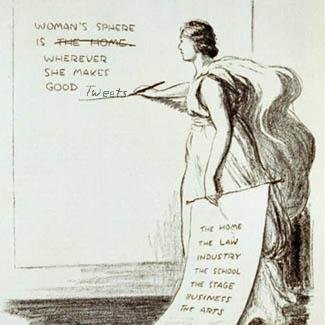 WOMAN'S SPHERE
IS THE HOME.
WHEREVER
SHE MAKES
GOOD Tweets
THE HOME
THE LAW
INDUSTRY
THE SCHOOL
THE STAGE
BUSINESS
THE ARTS